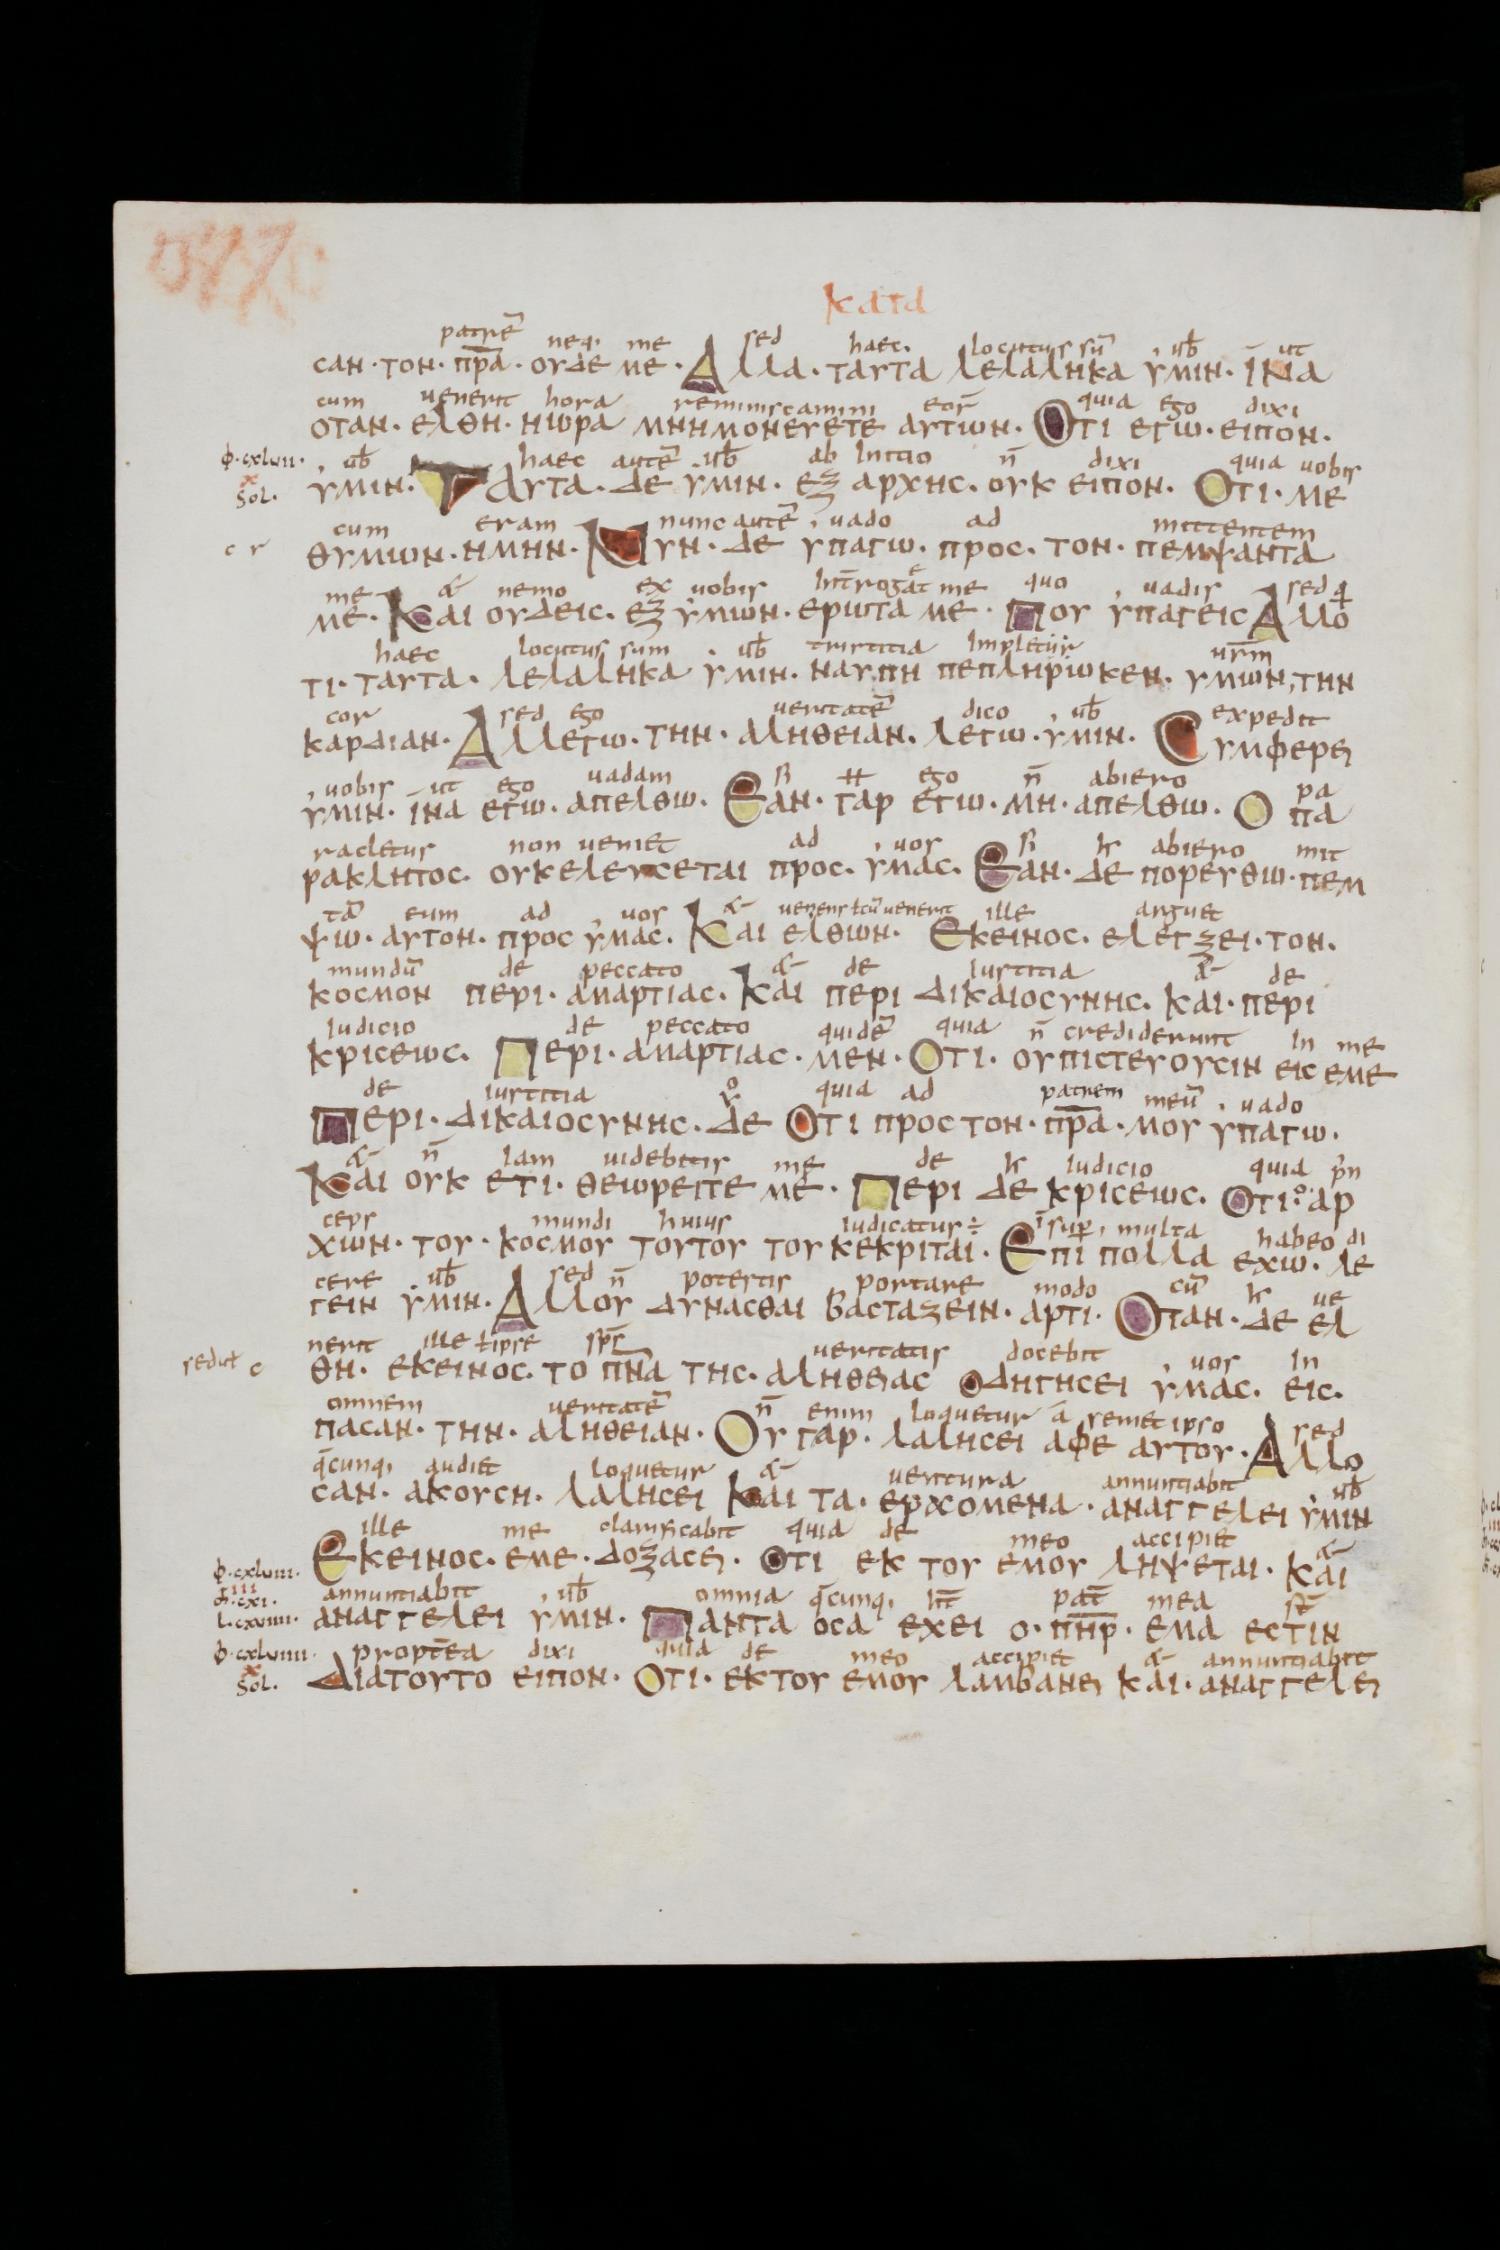 ΚΑΤΑ
patrē neq; me sed haec. locutus sū ub̄ ut
CΑΝ · ΤΟΝ · Π̅Ρ̅Α · ΟΥΔΕ ΜΕ · ΑΛΛΑ · ΤΑΥΤΑ ΛΕΛΑΛΗΚΑ ΥΜΙΝ · ΙΝΑ
cum uenerit hora reminiscamini eoꝝ quia ego dixi
ΟΤΑΝ · ΕΛΘΗ · ΗΩΡΑ ΜΝΗΜΟΝΕΥΕΤΕ ΑΥΤΩΝ · ΟΤΙ ΕΓΩ · ΕΙΠΟΝ ·
ub̄ haec autē ub̄ ab Initio n̄ dixi quia uobis
ΥΜΙΝ · ΤΑΥΤΑ · ΔΕ ΥΜΙΝ · ΕΞ ΑΡΧΗC · ΟΥΚ ΕΙΠΟΝ · ΟΤΙ · ΜΕ
Sol.
cum eram nunc autē uado ad mittentem
ΘΥΜΩΝ · ΗΜΗΝ · ΝΥΝ · ΔΕ ΥΠΑΓΩ · ΠΡΟC · ΤΟΝ · ΠΕΜΨΑΝΤΑ
me & nemo ex uobis Int̄rogat me quo uadis sed
ΜΕ · ΚΑΙ ΟΥΔΕΙC · ΕΞ ΥΜΩΝ · ΕΡΩΤΑ ΜΕ · ΠΟΥ ΥΠΑΓΕΙC ΑΛΛΟ
haec locutus sum ub̄ tristitia Impletur ur̄m
ΤΙ · ΤΑΥΤΑ · ΛΕΛΑΛΗΚΑ ΥΜΙΝ · ΗΛΥΠΗ ΠΕΠΛΗΡΩΚΕΝ · ΥΜΩΝ, ΤΗΝ
cor sed ego ueritatē dico ub̄ expedit
ΚΑΡΔΙΑΝ · ΑΛΛΕΓΩ · ΤΗΝ · ΑΛΗΘΕΙΑΝ · ΛΕΓΩ · ΥΜΙΝ · CΥΜΦΕΡΕΙ
uobis ut ego uadam si ego n̄ abiero pa
ΥΜΙΝ · ΙΝΑ ΕΓΩ · ΑΠΕΛΘΩ · ΕΑΝ · ΓΑΡ ΕΓΩ · ΜΗ · ΑΠΕΛΘΩ · Ο ΠΑ
racletus non ueniet ad uos si abiero mit
ΡΑΚΛΗΤΟC · ΟΥΚΕΛΕΥCΕΤΑΙ ΠΡΟC · ΥΜΑC · ΕΑΝ · ΔΕ ΠΟΡΕΥΘΩ · ΠΕΜ
tā eum ad uos & ueniens ł cū uenerit ille arguet
ΨΩ · ΑΥΤΟΝ · ΠΡΟC ΥΜΑC · ΚΑΙ ΕΛΘΩΝ · ΕΚΕΙΝΟC · ΕΛΕΓΞΕΙ · ΤΟΝ ·
mundū de peccato & de iustitia & de
ΚΟCΜΟΝ ΠΕΡΙ · ΑΜΑΡΤΙΑC · ΚΑΙ ΠΕΡΙ ΔΙΚΑΙΟCΥΝΗC · ΚΑΙ · ΠΕΡΙ
Iudicio de peccato quidē quia n̄ crediderunt In me
ΚΡΙCΕΩC · ΠΕΡΙ · ΑΜΑΡΤΙΑC · ΜΕΝ · ΟΤΙ · ΟΥΠΙCΤΕΥΟΥCΙΝ ΕΙC ΕΜΕ
de iustitia quia ad patrem meū uado
ΠΕΡΙ · ΔΙΚΑΙΟCΥΝΗC · ΔΕ ΟΤΙ ΠΡΟC ΤΟΝ · Π̅Ρ̅Α · ΜΟΥ ΥΠΑΓΩ ·
& n̄ Iam uidebitis me de Iudicio quia p̄n
ΚΑΙ ΟΥΚ ΕΤΙ · ΘΕΩΡΕΙΤΕ ΜΕ · ΠΕΡΙ ΔΕ ΚΡΙCΕΩC · ΟΤΙ · Ο ΑΡ
ceps mundi huius iudicatus ÷ sup̄ multa habeo di
ΧΩΝ · ΤΟΥ · ΚΟCΜΟΥ ΤΟΥΤΟΥ ΤΟΥ ΚΕΚΡΙΤΑΙ · ΕΠΙ ΠΟΛΛΑ ΕΧΩ · ΛΕ
cere ub̄ sed n̄ potestis portare modo cū ue
ΓΕΙΝ ΥΜΙΝ · ΑΛΛΟΥ ΔΥΝΑCΘΑΙ ΒΑCΤΑΖΕΙΝ · ΑΡΤΙ · ΟΤΑΝ · ΔΕ ΕΛ
nerit ille ł ipse sp̄s ueritatis docebit uos In
ΘΗ · ΕΚΕΙΝΟC · ΤΟ Π̅Ν̅Α ΤΗC · ΑΛΗΘΕΙΑC ΟΔΗΓΗCΕΙ ΥΜΑC · ΕΙC ·
omnem ueritatē n̄ enim loquetur ā semet ipso sed
ΠΑCΑΝ · ΤΗΝ · ΑΛΗΘΕΙΑΝ · ΟΥ ΓΑΡ · ΛΑΛΗCΕΙ ΑΦΕ ΑΥΤΟΥ · ΑΛΛΟ
q̄cunq; audiet loquetur & uentura annuntiabit ub̄
CΑΝ · ΑΚΟΥCΗ · ΛΑΛΗCΕΙ ΚΑΙ ΤΑ · ΕΡΧΟΜΕΝΑ · ΑΝΑΓΓΕΛΕΙ ΥΜΙΝ
ille me clarificabit quia de meo accipiet &
ΕΚΕΙΝΟC · ΕΜΕ · ΔΟΞΑCΕΙ · ΟΤΙ ΕΚ ΤΟΥ ΕΜΟΥ ΛΗΨΕΤΑΙ · ΚΑΙ
annuntiabit ub̄ omnia q̄cunq; ht̄ pat̄ mea st̄
ΑΝΑΓΓΕΛΕΙ ΥΜΙΝ · ΠΑΝΤΑ ΟCΑ ΕΧΕΙ Ο · Π̅Η̅Ρ̅ · ΕΜΑ ΕCΤΙΝ
propt̄ea dixi quia de meo accipiet & annuntiabit
ΔΙΑΤΟΥΤΟ ΕΙΠΟΝ · ΟΤΙ · ΕΚΤΟΥ ΕΜΟΥ ΛΑΜΒΑΝΕΙ ΚΑΙ · ΑΝΑΓΓΕΛΕΙ
Sol.